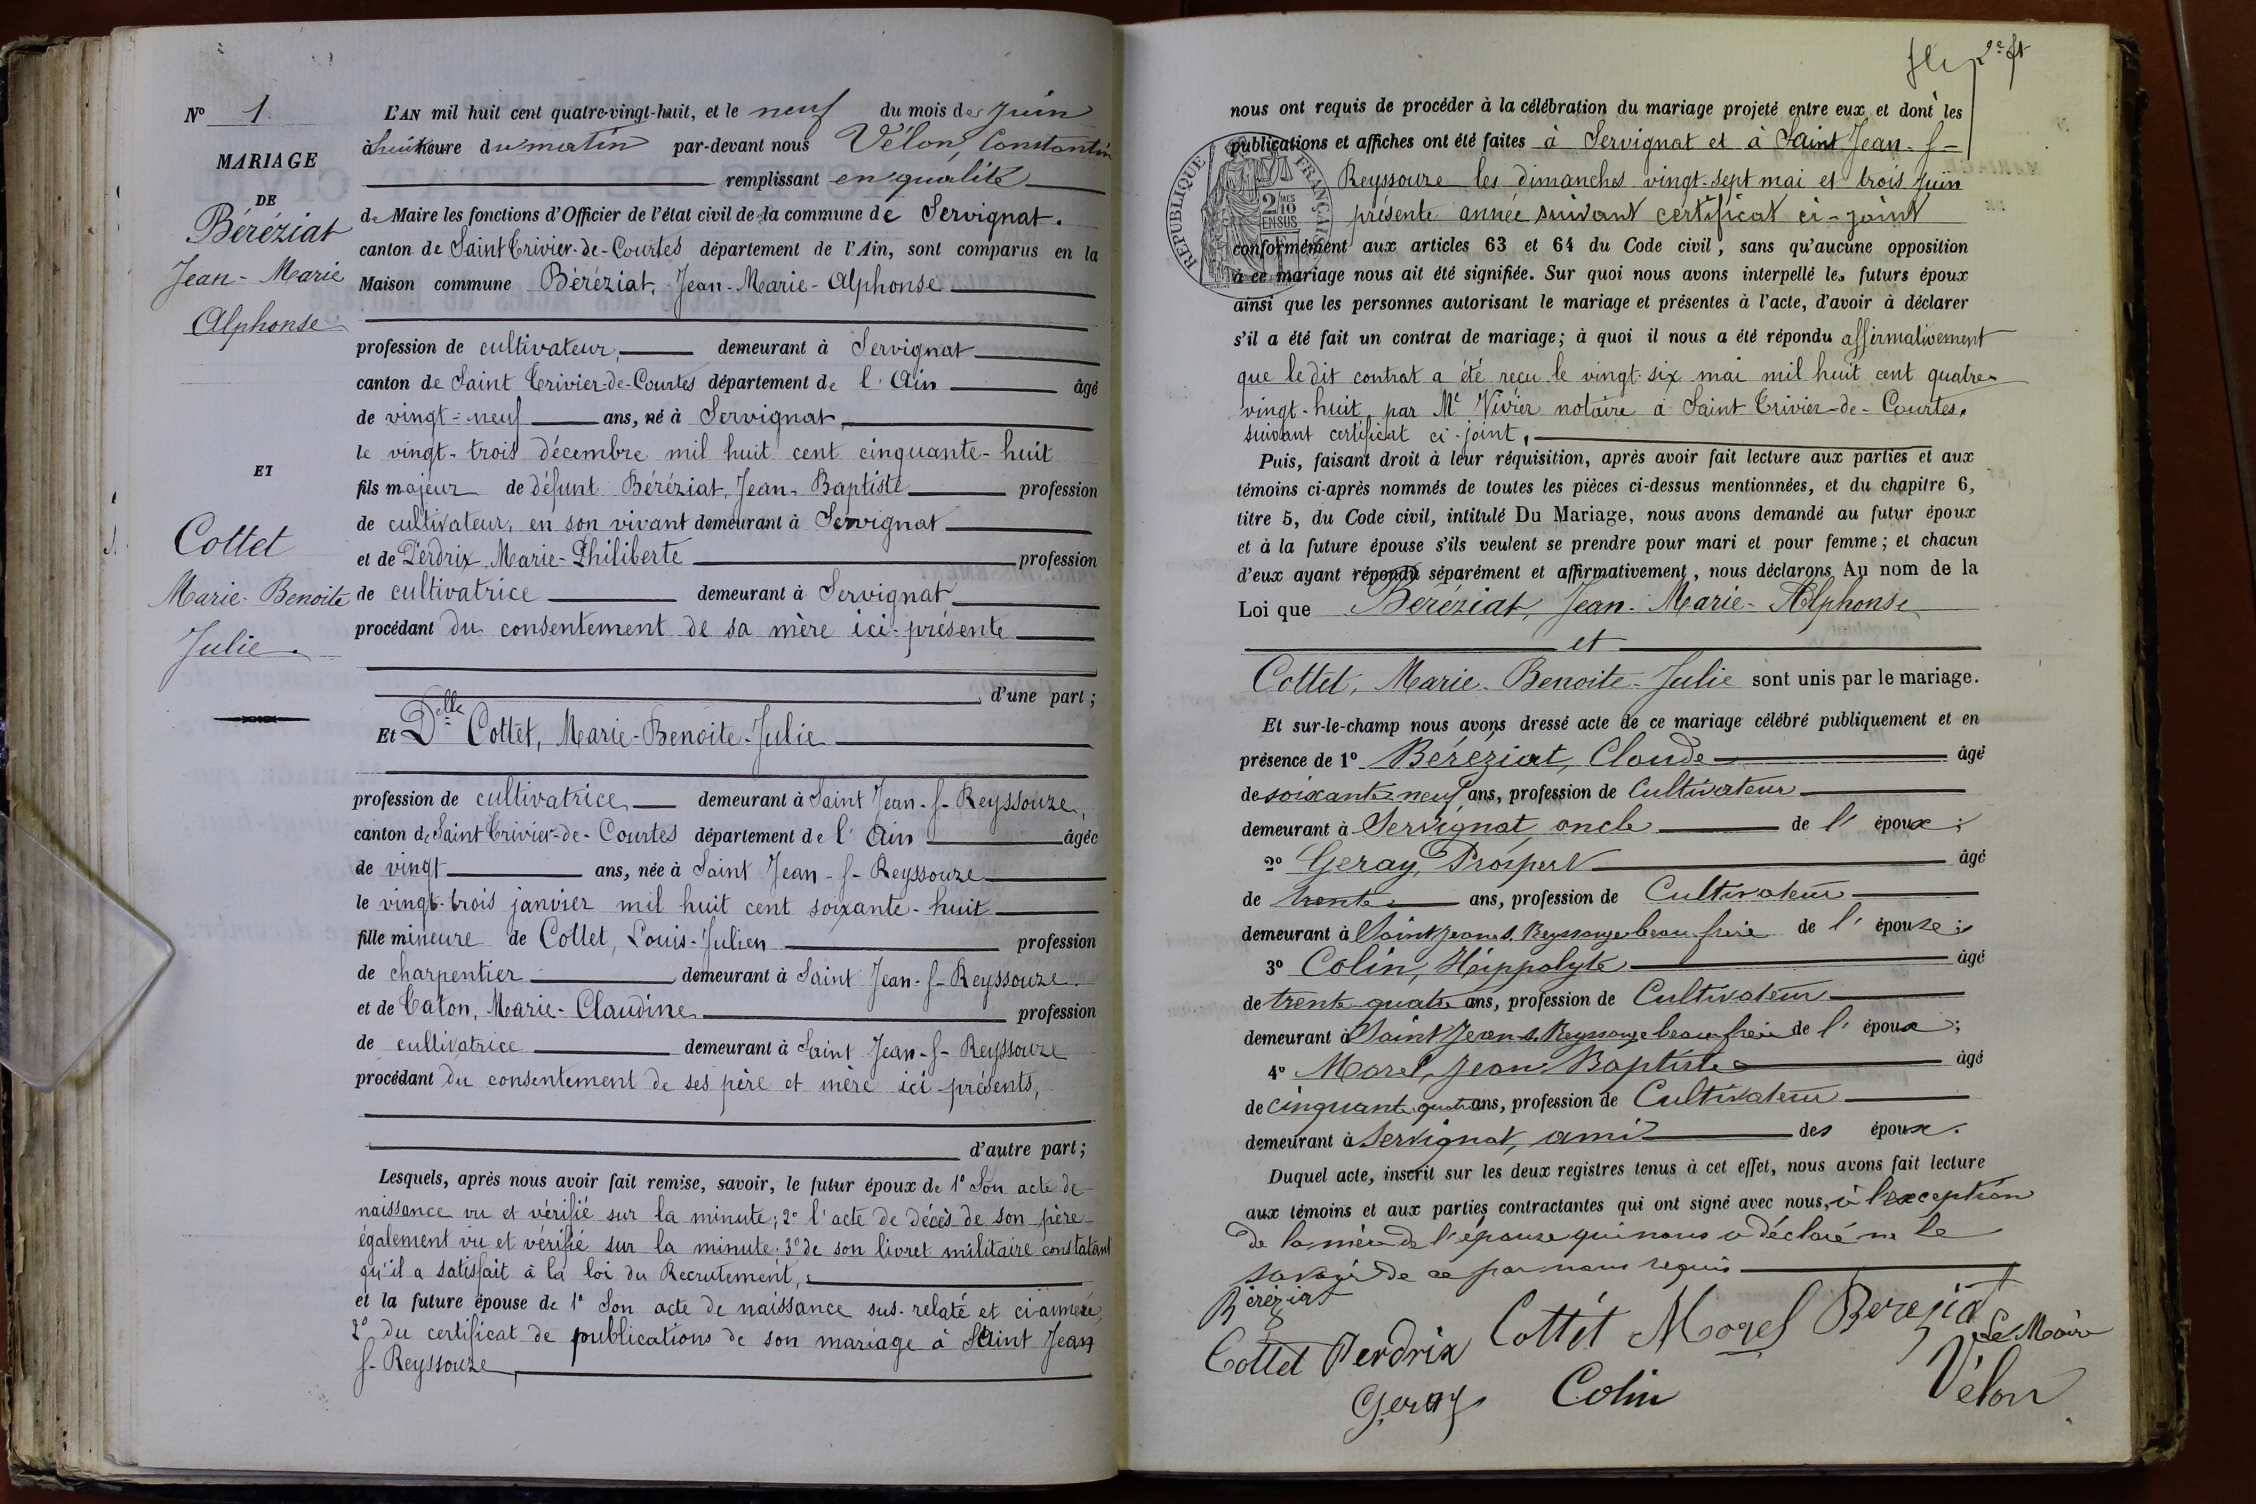 N° 1
MARIAGE
DE
Béréziat
Jean-Marie
Alphonse
ET
Cottet
Marie-Benoite
Julie.
L'AN mil huit cent quatre-vingt-huit, et le neuf du mois de Juin
à huit heure du matin par-devant nous Vélon, Constantin
remplissant en qualité
de Maire les fonctions d'Officier de l'état civil de la commune de Servignat.
canton de Saint Trivier-de-Courtes département de l'Ain, sont comparus en la
Maison commune Béréziat, Jean-Marie-Alphonse
profession de cultivateur, demeurant à Servignat
canton de Saint Trivier-de-Courtes département de l'Ain âgé
de vingt-neuf ans, né à Servignat,
le vingt-trois décembre mil huit cent cinquante-huit
fils majeur de défunt Béréziat, Jean-Baptiste profession
de cultivateur, en son vivant demeurant à Servignat
et de Perdrix, Marie-Philiberte profession
de cultivatrice demeurant à Servignat
procédant du consentement de sa mère ici-présente
d'une part ;
Et Delle Cottet, Marie-Benoite-Julie
profession de cultivatrice, demeurant à Saint Jean-s-Reyssouze,
canton de Saint Trivier-de-Courtes département de l'Ain âgée
de vingt ans, née à Saint Jean-s-Reyssouze
le vingt-trois janvier mil huit cent soixante-huit
fille mineure de Cottet, Louis-Julien profession
de charpentier demeurant à Saint Jean-s-Reyssouze.
et de Caton, Marie-Claudine profession
de cultivatrice demeurant à Saint Jean-s-Reyssouze
procédant du consentement de ses père et mère ici-présents,
d'autre part ;
Lesquels, après nous avoir fait remise, savoir, le futur époux de 1° Son acte de
naissance vu et vérifié sur la minute; 2° l'acte de décès de son père
également vu et vérifié sur la minute; 3° de son livret militaire constatant
qu'il a satisfait à la loi du Recrutement,
et la future épouse de 1° Son acte de naissance sus-relaté et ci-annexé,
2° du certificat de publications de son mariage à Saint Jean
s-Reyssouze
2e ft
nous ont requis de procéder à la célébration du mariage projeté entre eux et dont les
publications et affiches ont été faites à Servignat et à Saint Jean-s-
Reyssouze les dimanches vingt-sept mai et trois juin
présente année suivant certificat ci-joint
REPUBLIQUE FRANÇAISE
2 10
EN SUS
conformément aux articles 63 et 64 du Code civil, sans qu'aucune opposition
à ce mariage nous ait été signifiée. Sur quoi nous avons interpellé les futurs époux
ainsi que les personnes autorisant le mariage et présentes à l'acte, d'avoir à déclarer
s'il a été fait un contrat de mariage; à quoi il nous a été répondu affirmativement
que le dit contrat a été reçu le vingt-six mai mil huit cent quatre-
vingt-huit par Me Vivier notaire à Saint Trivier-de-Courtes,
suivant certificat ci-joint,
Puis, faisant droit à leur réquisition, après avoir fait lecture aux parties et aux
témoins ci-après nommés de toutes les pièces ci-dessus mentionnées, et du chapitre 6,
titre 5, du Code civil, intitulé Du Mariage, nous avons demandé au futur époux
et à la future épouse s'ils veulent se prendre pour mari et pour femme; et chacun
d'eux ayant répondu séparément et affirmativement, nous déclarons Au nom de la
Loi que Béréziat, Jean-Marie-Alphonse
et
Cottet, Marie-Benoite-Julie sont unis par le mariage.
Et sur-le-champ nous avons dressé acte de ce mariage célébré publiquement et en
présence de 1° Béréziat, Claude âgé
de soixante neuf ans, profession de Cultivateur
demeurant à Servignat, oncle de l'époux;
2° Geray, Prospert âgé
de trente ans, profession de Cultivateur
demeurant à Saint Jean s. Reyssouze beau frère de l'épouse;
3° Colin, Hippolyte âgé
de trente quatre ans, profession de Cultivateur
demeurant à Saint Jean s. Reyssouze beau frère de l'époux;
4° Morel, Jean Baptiste âgé
de cinquante quatre ans, profession de Cultivateur
demeurant à Servignat, ami des époux.
Duquel acte, inscrit sur les deux registres tenus à cet effet, nous avons fait lecture
aux témoins et aux parties contractantes qui ont signé avec nous, à l'exception
de la mère de l'épouse qui nous a déclaré ne le
savoir de ce par nous requis
Béréziat
Cottet Perdrix Cottet Morel Berezia Le Maire
Geray Colin Vélon